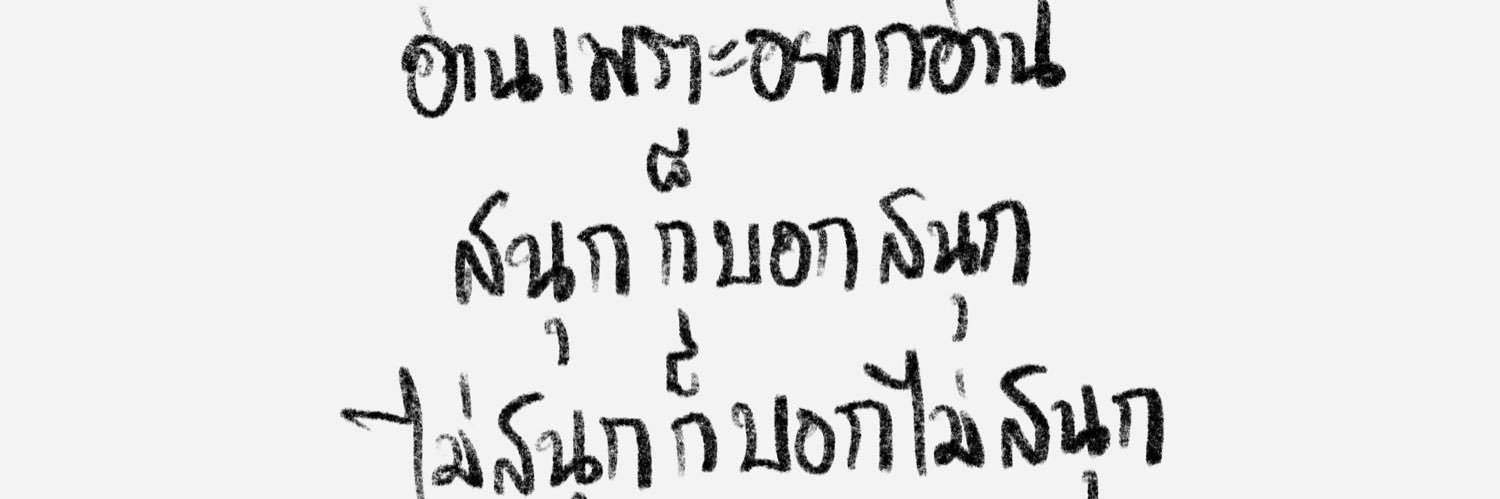 อ่านเพราะอยากอ่าน
สนุก ก็บอกสนุก
ไม่สนุกก็บอกไม่สนุก